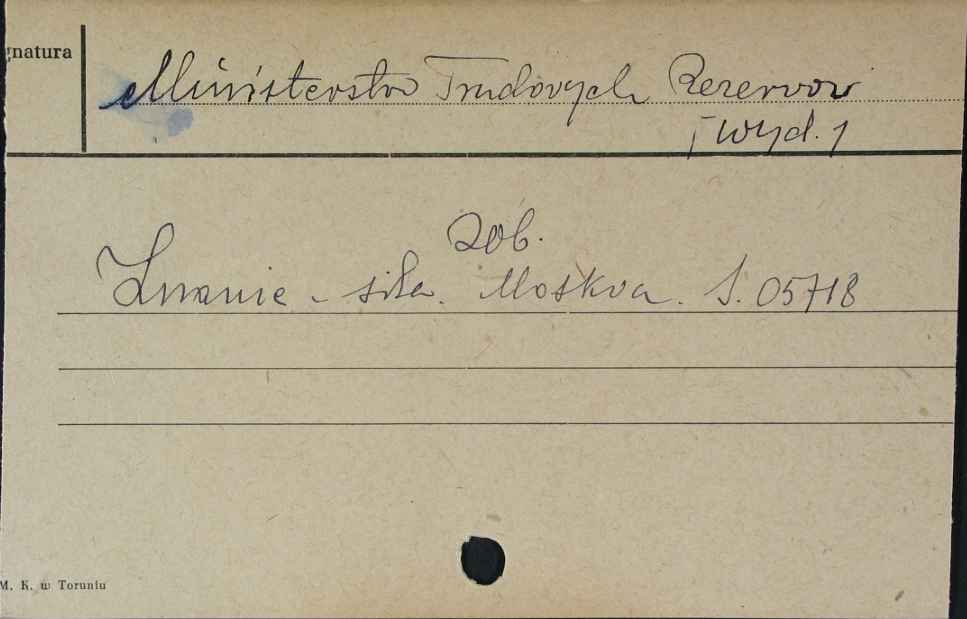 gnatura
Ministerstvo Trudovych Rezervov
[wyd.]
zob.
Znanie - sila. Moskva. S. 05718
M. K. w Toruniu